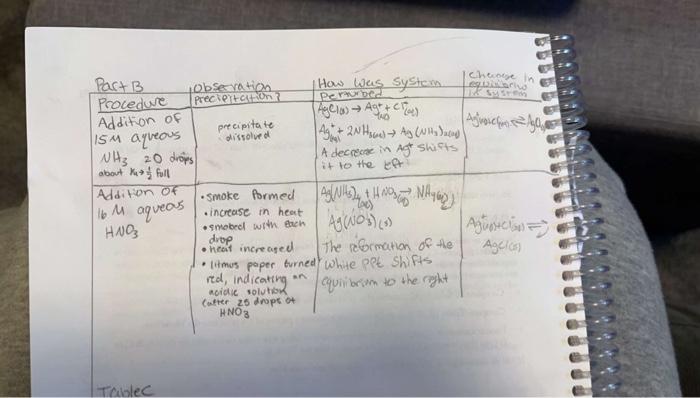 Part B
Procedure
Observation
precipitation?
How was system
Perturbed
Change in
in system
Addition of
15M aqueous
NH3 20 drops
about 1/4→1/2 full
precipitate
dissolved
AgCl(s) → Ag+ + Cl-(aq)
A decrease in Ag+ shifts
it to the left
Addition of
16 M aqueous
HNO3
• smoke formed
• increase in heat
• smoked with each
drop
• heat increased
• litmus paper turned
red, indicating an
acidic solution
(after 25 drops of
HNO3
(s)
The reformation of the
white ppt shifts
equilibrium to the right
Ag+(aq)+Cl-(aq) ⇌
AgCl(s)
Table C